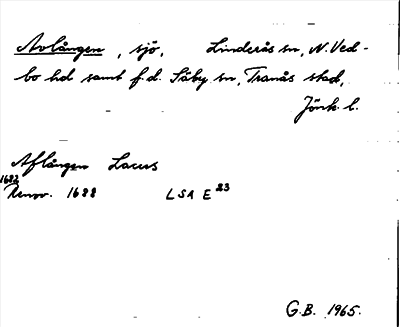 Avlången, sjö, Linderås sn, N. Ved-
bo hd samt f.d. Säby sn, Tranås stad,
Jönk. l.
Aflången Lacus
1682
Renov. 1688 LSA E 23
G.B. 1965.